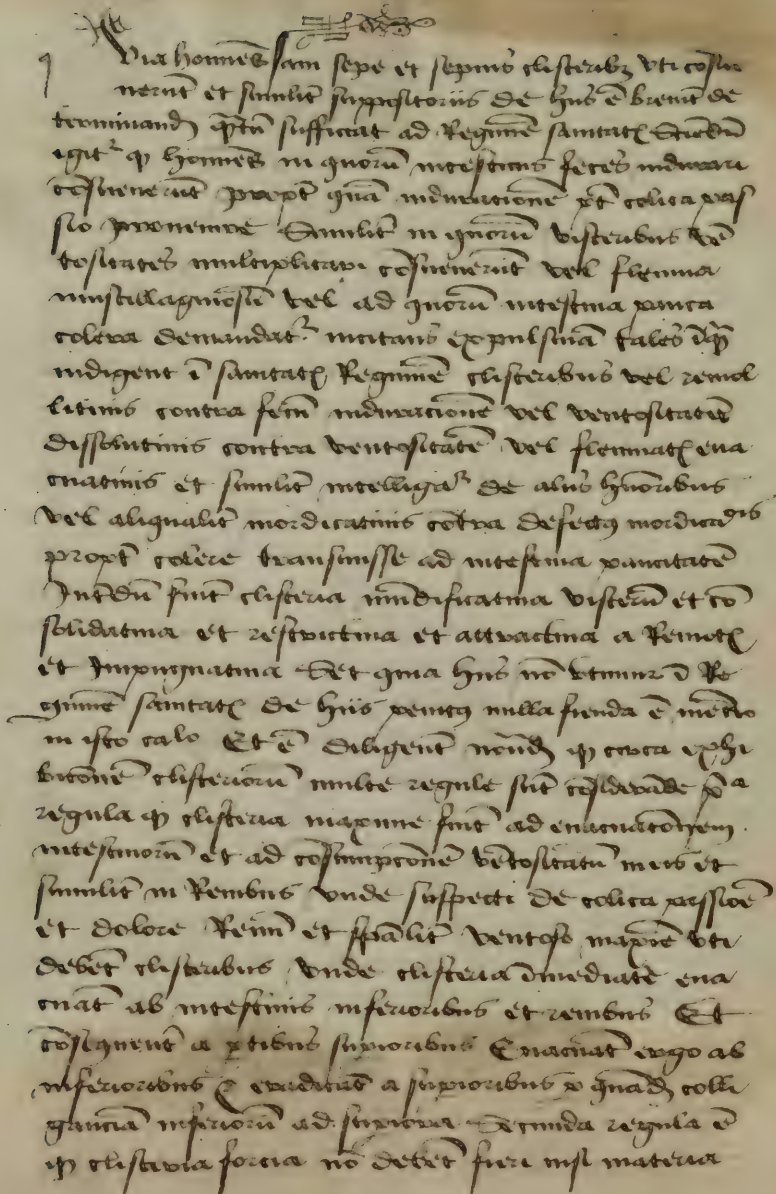 Quia homines sam sepe et sepius clisteribꝫ vti cōsue
uerūt et similit̄ suppositoriis de hiis ē breuit̄ de
terminandū q̄tū sufficiat ad Regimē sanitatꝭ Sciēdū
igit᷑ ꝙ homines in quorū intestinis feces indurari
cōsueuerūt propt̄ quā induracionē p̄t colica pas
sio prouenire Similit̄ in quorū visceribus vē
tositates multiplicari cōsueuerūt vel flemma
muscillaginosū vel ad quorū intestina pauca
colera demandat᷑ incitans expulsiuā tales
indigent ī sanitatꝭ Regimē clisteribus vel remol
litiuis contra fecū induracionē vel ventositatū
dissolutiuis contra ventositatē vel flemmatꝭ eua
cuatiuis et similit̄ intelligat᷑ de aliis hūoribus
vel aliqualit̄ mordicatiuis cōtra defectꝰ mordicācis
propt̄ colere transmisse ad intestina paucitatē
fiūt clisteria mūdificatiua viscerū et cō
solidatiua et restrictiua et attractiua a Remotꝭ
et Impugnatiua Set quia hiis nō vtimur ī Re
gimē sanitatꝭ de hiis penitꝰ nulla fienda ē mētio
in isto calo Et ē diligent̄ notādū ꝙ circa exhi
bitionē clisteriorū multe regule sūt cōsiderāde pᵃ
regula ꝙ clisteria maxime fiūt ad euacuatōnem
intestinorū et ad cōsumpcionē vētositatū in eis et
similit̄ in Renibus vnde suspecti de colica passiōe
et dolore Renū et sp̄alit̄ ventose maxīe vti
debēt clisteribus vnde clisteria īmediate eua
cuāt ab intestinis inferioribus et renibus Et
cōsiquent̄ a ꝑtibus supioribus Euacuāt ergo ab
inferioribus & eradicāt a supioribus ꝑ quādā colli
ganciā inferiorū ad supiora Secunda regula ē
ꝙ clisteria forcia nō debēt fieri nisi materia